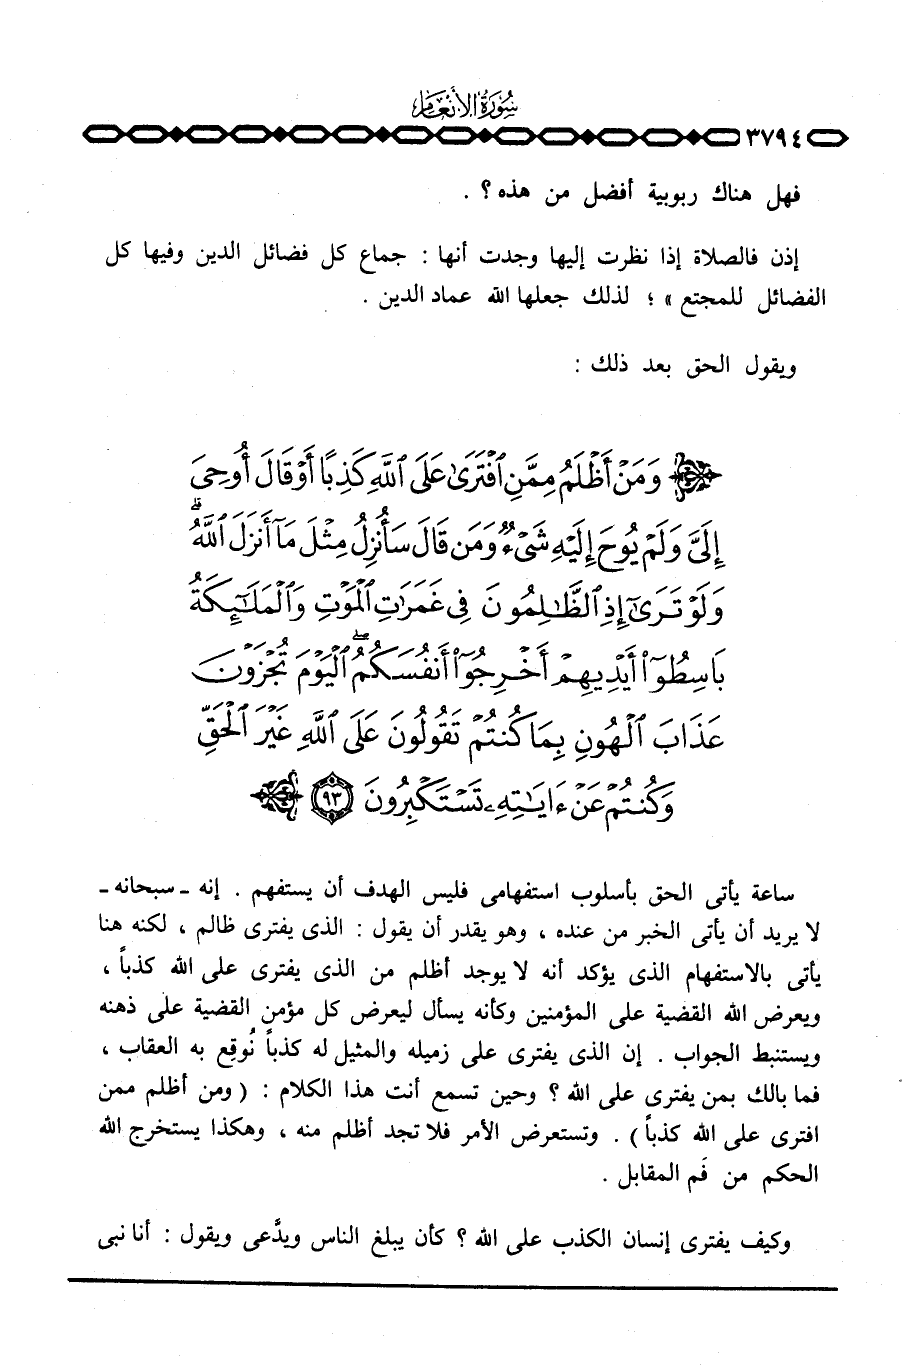 سورة الأنعام
٣٧٩٤
فهل هناك ربوبية أفضل من هذه ؟ .
إذن فالصلاة إذا نظرت إليها وجدت أنها : جماع كل فضائل الدين وفيها كل
الفضائل للمجتع » ؛ لذلك جعلها الله عماد الدين .
ويقول الحق بعد ذلك :
وَمَنْ أَظْلَمُ مِمَّنِ ٱفْتَرَىٰ عَلَى ٱللَّهِ كَذِبًا أَوْ قَالَ أُوحِىَ
إِلَىَّ وَلَمْ يُوحَ إِلَيْهِ شَىْءٌ وَمَن قَالَ سَأُنزِلُ مِثْلَ مَآ أَنزَلَ ٱللَّهُ ۗ
وَلَوْ تَرَىٰٓ إِذِ ٱلظَّٰلِمُونَ فِى غَمَرَٰتِ ٱلْمَوْتِ وَٱلْمَلَٰٓئِكَةُ
بَاسِطُوٓا۟ أَيْدِيهِمْ أَخْرِجُوٓا۟ أَنفُسَكُمُ ۖ ٱلْيَوْمَ تُجْزَوْنَ
عَذَابَ ٱلْهُونِ بِمَا كُنتُمْ تَقُولُونَ عَلَى ٱللَّهِ غَيْرَ ٱلْحَقِّ
وَكُنتُمْ عَنْ ءَايَٰتِهِۦ تَسْتَكْبِرُونَ ٩٣
ساعة يأتى الحق بأسلوب استفهامى فليس الهدف أن يستفهم . إنه ـ سبحانه ـ
لا يريد أن يأتى الخبر من عنده ، وهو يقدر أن يقول : الذى يفترى ظالم ، لكنه هنا
يأتى بالاستفهام الذى يؤكد أنه لا يوجد أظلم من الذى يفترى على الله كذباً ،
ويعرض الله القضية على المؤمنين وكأنه يسأل ليعرض كل مؤمن القضية على ذهنه
ويستنبط الجواب . إن الذى يفترى على زميله والمثيل له كذباً نُوقِع به العقاب ،
فما بالك بمن يفترى على الله ؟ وحين تسمع أنت هذا الكلام : ( ومن أظلم ممن
افترى على الله كذباً ) . وتستعرض الأمر فلا تجد أظلم منه ، وهكذا يستخرج الله
الحكم من فَم المقابل .
وكيف يفترى إنسان الكذب على الله ؟ كأن يبلغ الناس ويدَّعى ويقول : أنا نبى